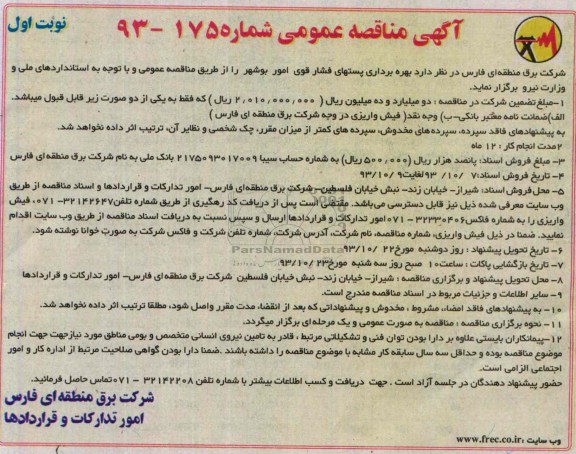 نوبت اول
آگهی مناقصه عمومی شماره ۱۷۵ -۹۳
شرکت برق منطقه‌ای فارس در نظر دارد بهره برداری پستهای فشار قوی امور بوشهر را از طریق مناقصه عمومی و با توجه به استانداردهای ملی و
وزارت نیرو برگزار نماید.
۱-مبلغ تضمین شرکت در مناقصه : دو میلیارد و ده میلیون ریال ( ۲,۰۱۰,۰۰۰,۰۰۰ ریال ) که فقط به یکی از دو صورت زیر قابل قبول میباشد.
الف)ضمانت نامه معتبر بانکی-ب) وجه نقد( فیش واریزی در وجه شرکت برق منطقه ای فارس )
به پیشنهادهای فاقد سپرده، سپرده‌های مخدوش، سپرده های کمتر از میزان مقرر، چک شخصی و نظایر آن، ترتیب اثر داده نخواهد شد.
۲مدت انجام کار : ۱۲ ماه
۳- مبلغ فروش اسناد: پانصد هزار ریال (۵۰۰,۰۰۰ ریال) به شماره حساب سیبا ۲۱۷۵۰۹۳۰۱۷۰۰۹ بانک ملی به نام شرکت برق منطقه ای فارس
۴- تاریخ فروش اسناد:۷ /۱۰/ ۹۳ لغایت۹ /۹۳/۱۰
۵- محل فروش اسناد: شیراز- خیابان زند- نبش خیابان فلسطین-شرکت برق منطقه‌ای فارس- امور تدارکات و قراردادها و اسناد مناقصه از طریق
وب سایت معرفی شده ذیل نیز قابل دسترسی می‌باشد. مقتضی است پس از دریافت کد رهگیری از طریق شماره تلفن۳۲۱۴۲۶۴۷-۰۷۱ فیش
واریزی را به شماره فاکس۳۲۲۳۰۴۰۶-۰۷۱ امور تدارکات و قراردادها ارسال و سپس نسبت به دریافت اسناد مناقصه از طریق وب سایت اقدام
نمایید. ضمنا در ذیل فیش واریزی، شماره مناقصه، نام شرکت، آدرس شرکت، شماره تلفن شرکت و فاکس شرکت به صورت خوانا نوشته شود.
۶- تاریخ تحویل پیشنهاد : روز دوشنبه مورخ۲۲ /۹۳/۱۰
۷- تاریخ بازگشایی پاکات : ساعت۱۰ صبح روز سه شنبه مورخ۲۳ /۹۳/۱۰
۸- محل تحویل پیشنهاد و برگزاری مناقصه : شیراز- خیابان زند- نبش خیابان فلسطین شرکت برق منطقه ای فارس- امور تدارکات و قراردادها
۹- سایر اطلاعات و جزئیات مربوط در اسناد مناقصه مندرج است.
۱۰- به پیشنهادهای فاقد امضاء، مشروط ، مخدوش و پیشنهاداتی که بعد از انقضاء مدت مقرر واصل شود، مطلقا ترتیب اثر داده نخواهد شد.
۱۱- نحوه برگزاری مناقصه : مناقصه به صورت عمومی و یک مرحله ای برگزار میگردد.
۱۲-پیمانکاران بایستی علاوه بر دارا بودن توان فنی و تشکیلاتی مرتبط ، قادر به تامین نیروی انسانی متخصص و بومی مناطق مورد نیازجهت انجام
موضوع مناقصه بوده و حداقل سه سال سابقه کار مشابه با موضوع مناقصه را داشته باشند .ضمنا دارا بودن گواهی صلاحیت مرتبط از اداره کار و امور
اجتماعی الزامی است.
حضور پیشنهاد دهندگان در جلسه آزاد است . جهت دریافت و کسب اطلاعات بیشتر با شماره تلفن ۳۲۱۴۲۲۰۸ -۰۷۱تماس حاصل فرمائید.
شرکت برق منطقه ای فارس
امور تدارکات و قراردادها
وب سایت :www.frec.co.ir
ParsNamadData